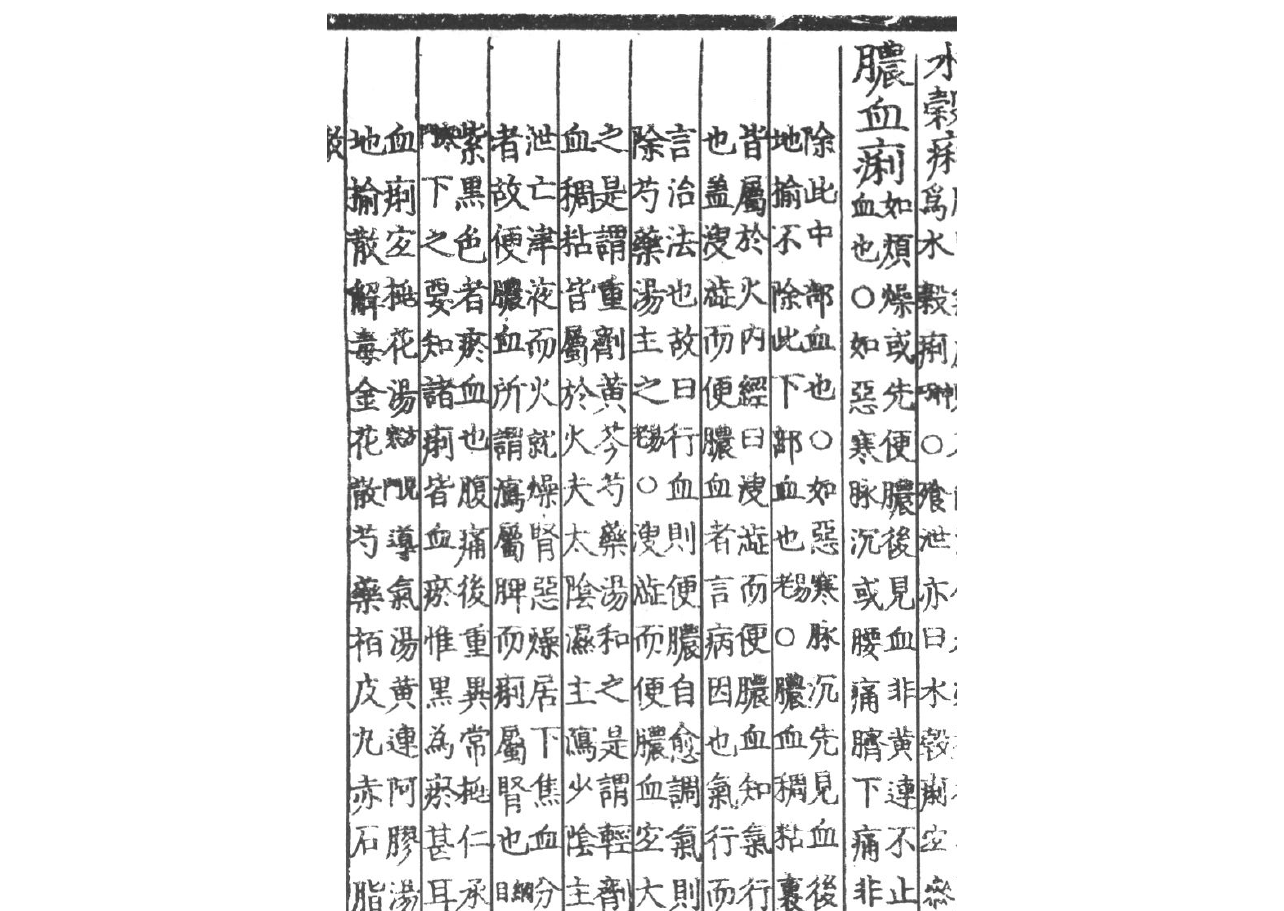 水穀痢
爲水穀痢○飱泄亦曰水穀痢宜
膿血痢
如煩燥或先便膿後見血非黃連不止
血也○如惡寒脉沉或腰痛臍下痛非
除此中部血也○如惡寒脉沉先見血後
地揄不除此下部血也易老○膿血稠粘裏
皆屬於火內經曰溲澁而便膿血知氣行
也盖溲澁而便膿血者言病因也氣行而
言治法也故曰行血則便膿自愈調氣則
除芍藥湯主之易老○溲澁而便膿血宜大
之是謂重劑黃芩芍藥湯和之是謂輕劑
血稠粘皆屬於火夫太陰濕主瀉少陰主
泄亡津液而火就燥腎惡燥居下焦血分
者故便膿血所謂瀉屬脾而痢屬腎也綱目
紫黑色者瘀血也腹痛後重異常桃仁承
寒門下之要知諸痢皆血瘀惟黑為瘀甚耳
血痢宜桃花湯方見寒門導氣湯黃連阿膠湯
地揄散解毒金花散芍藥栢皮丸赤石脂
散